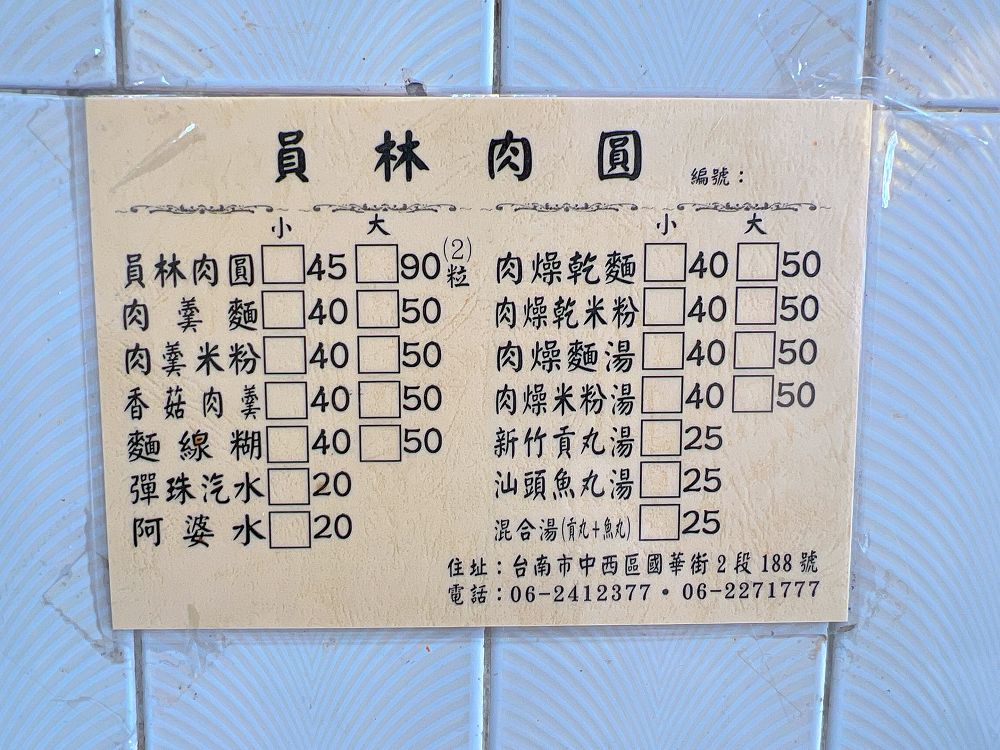 員林肉圓 編號：
小 大
員林肉圓 45 90 (2)粒
肉羹麵 40 50
肉羹米粉 40 50
香菇肉羹 40 50
麵線糊 40 50
彈珠汽水 20
阿婆水 20
小 大
肉燥乾麵 40 50
肉燥乾米粉 40 50
肉燥麵湯 40 50
肉燥米粉湯 40 50
新竹貢丸湯 25
汕頭魚丸湯 25
混合湯(貢丸+魚丸) 25
住址：台南市中西區國華街2段188號
電話：06-2412377・06-2271777